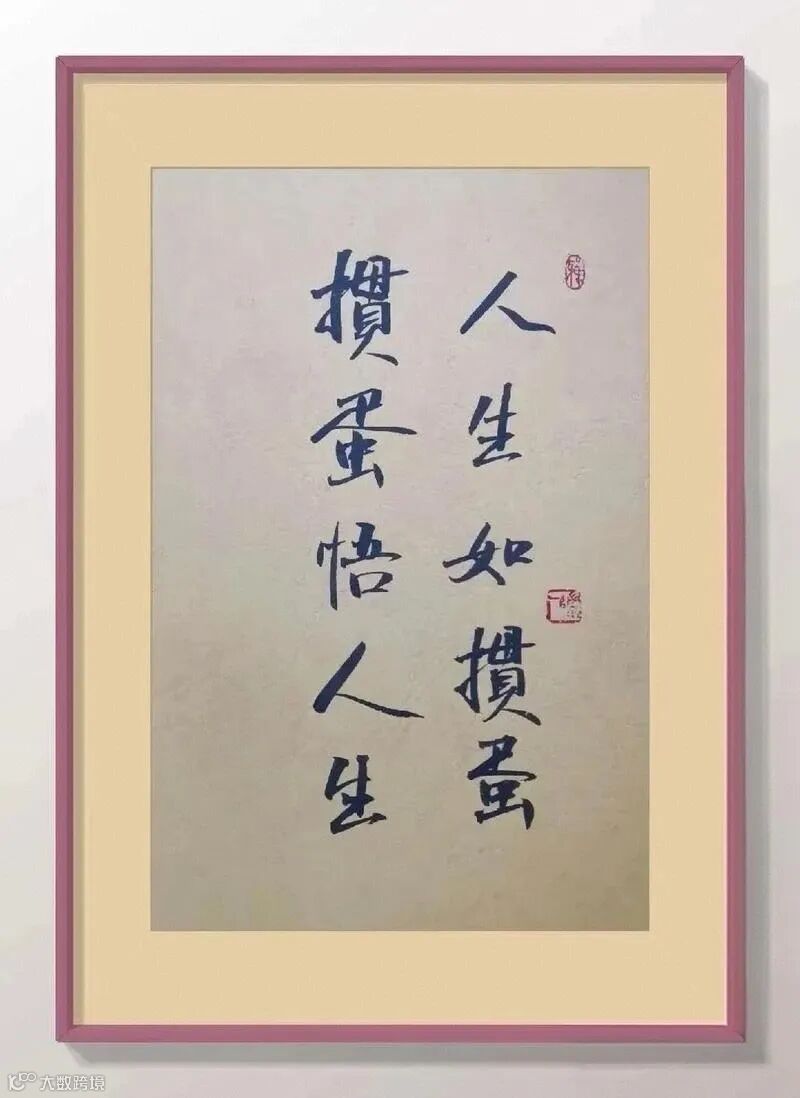 人生如掼蛋
掼蛋悟人生
大数跨境